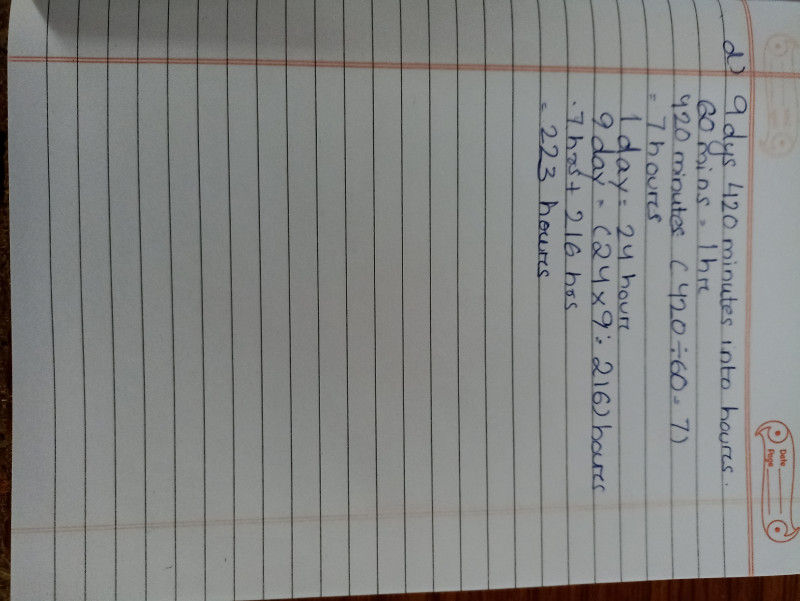 Date
Page
d) 9 dys 420 minutes into houres.
60 mins = 1 hr
420 minutes (420÷60=7)
= 7 houres
1 day = 24 hours
9 day = (24×9=216) houres
7 hrs + 216 hrs
= 223 houres